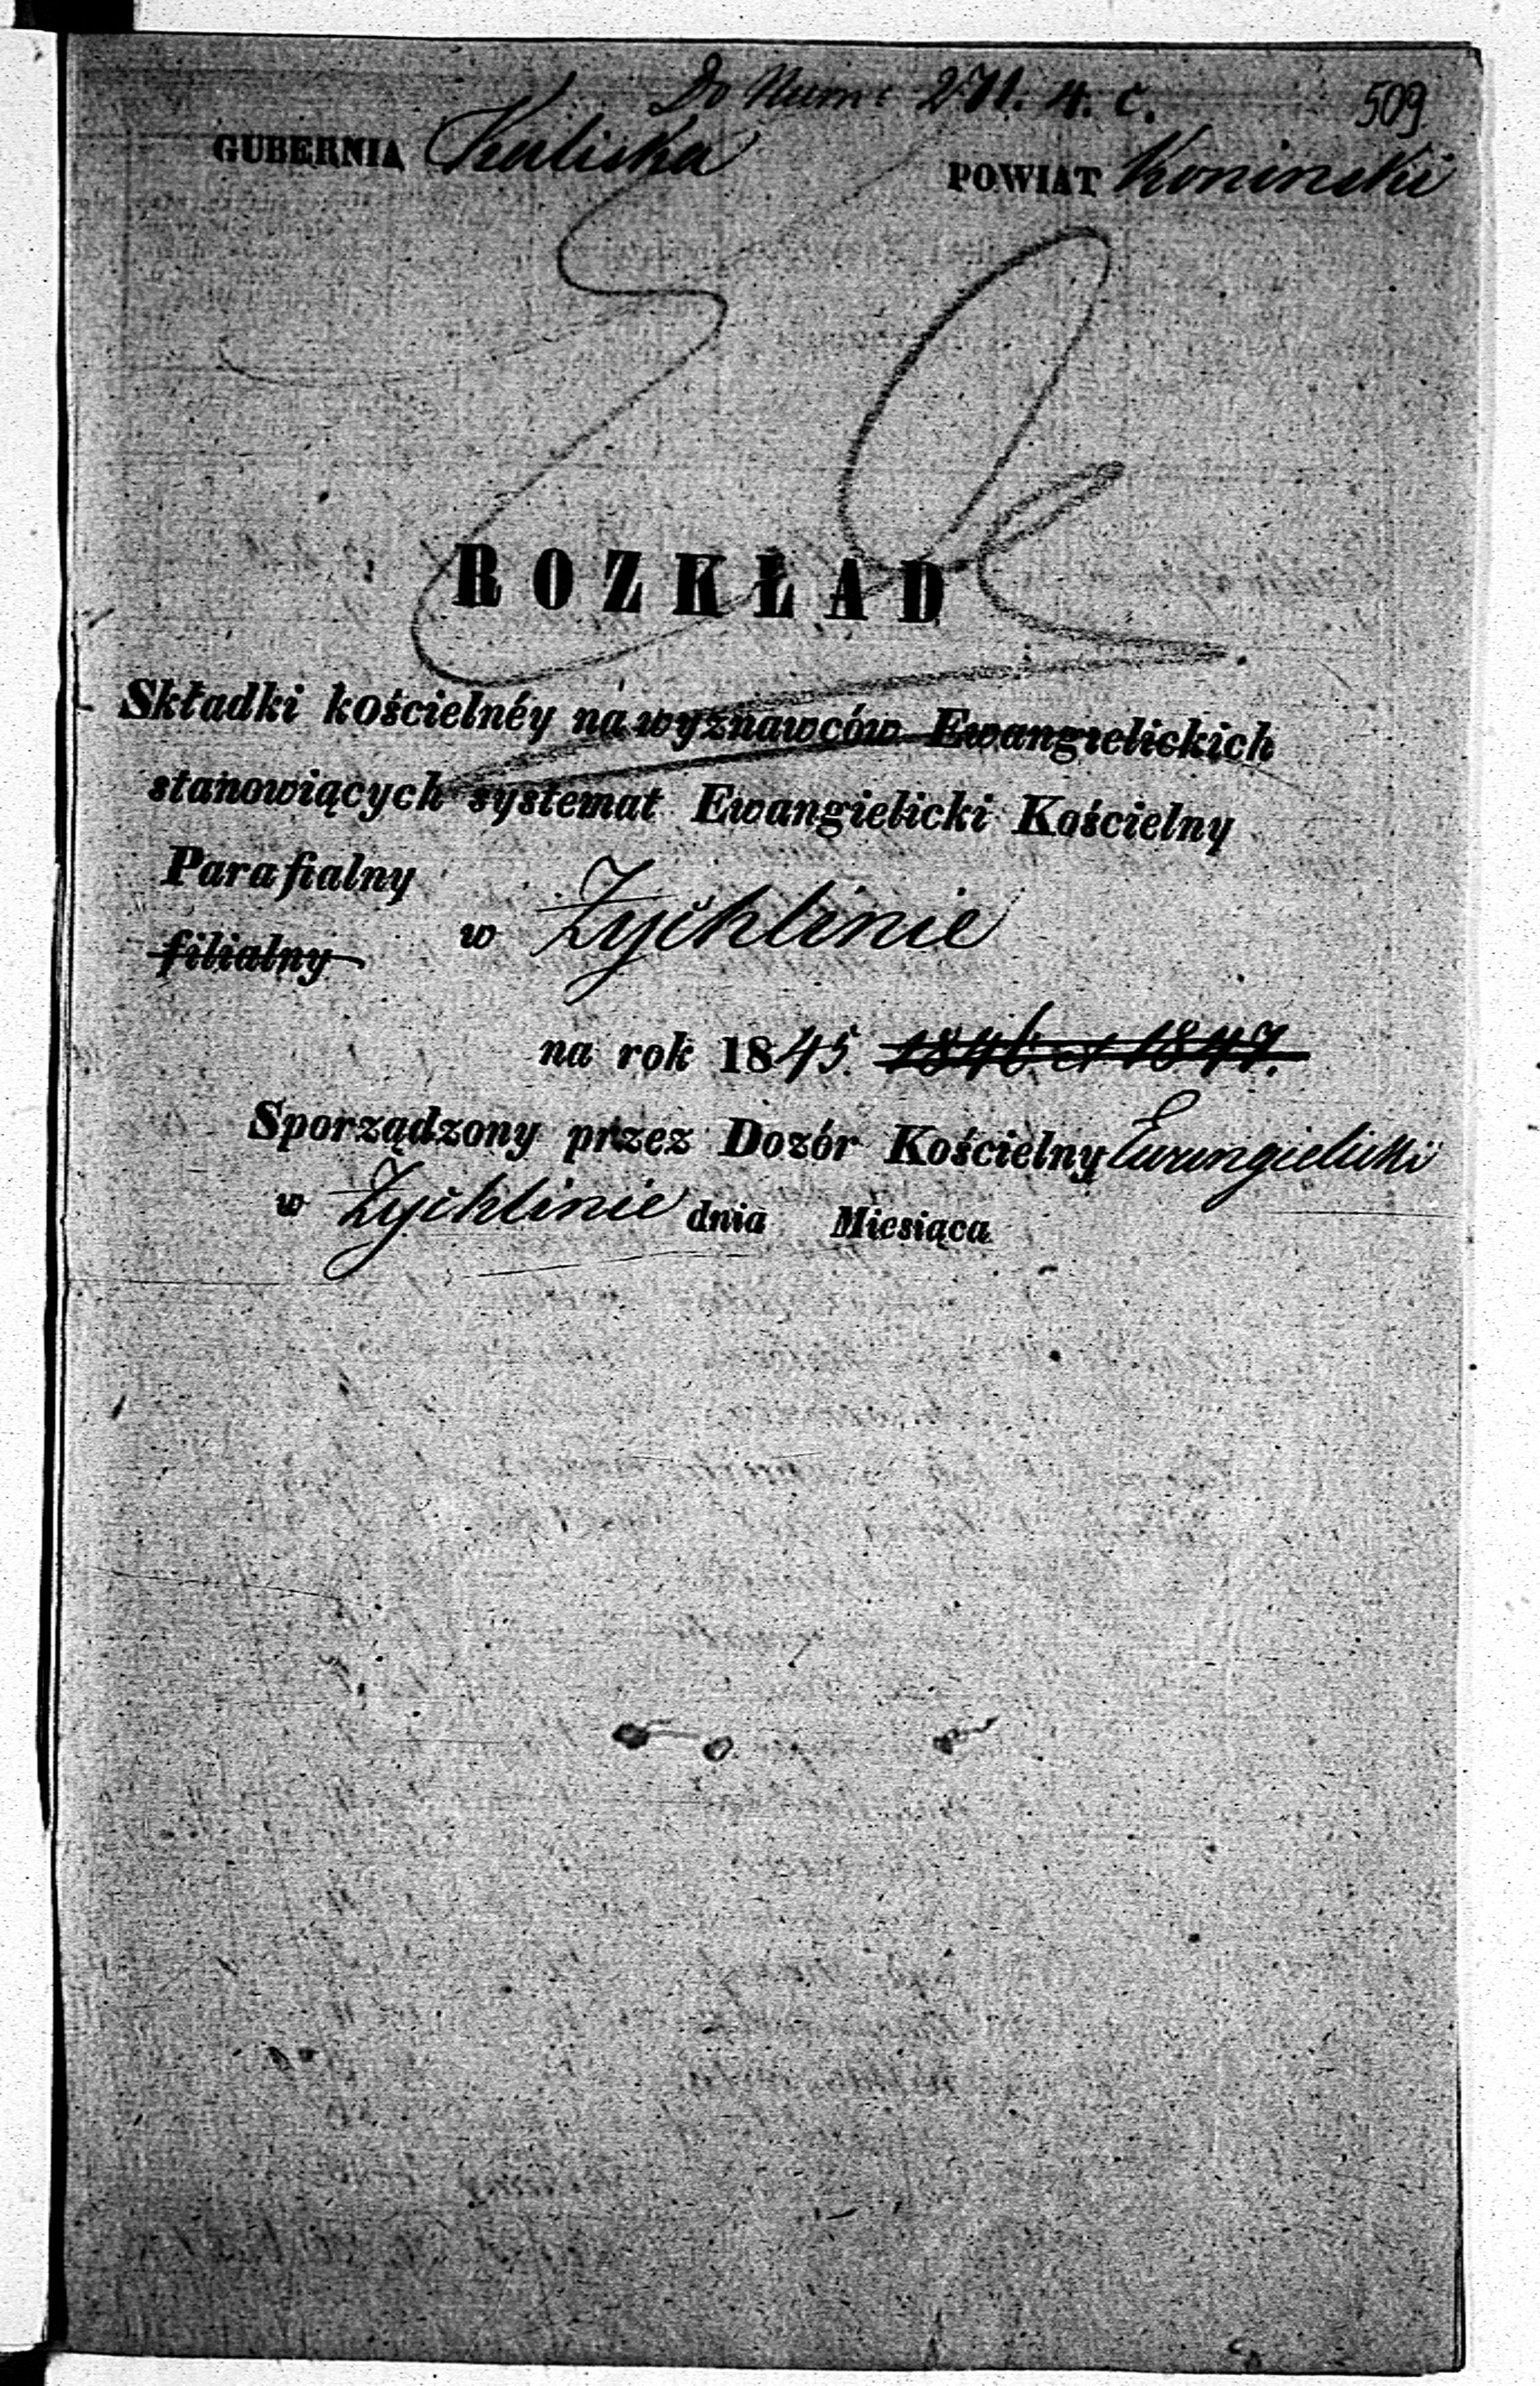 Do Num: 271. 4. c. 509
GUBERNIA Kaliska POWIAT Koninski
ROZKŁAD
Składki kościelnéy na wyznawców Ewangielickich
stanowiących systemat Ewangielicki Kościelny
Parafialny
filialny w Zychlinie
na rok 1845. 1846 et 1847.
Sporządzony przez Dozór Kościelny Ewangielicki
w Zychlinie dnia Miesiąca